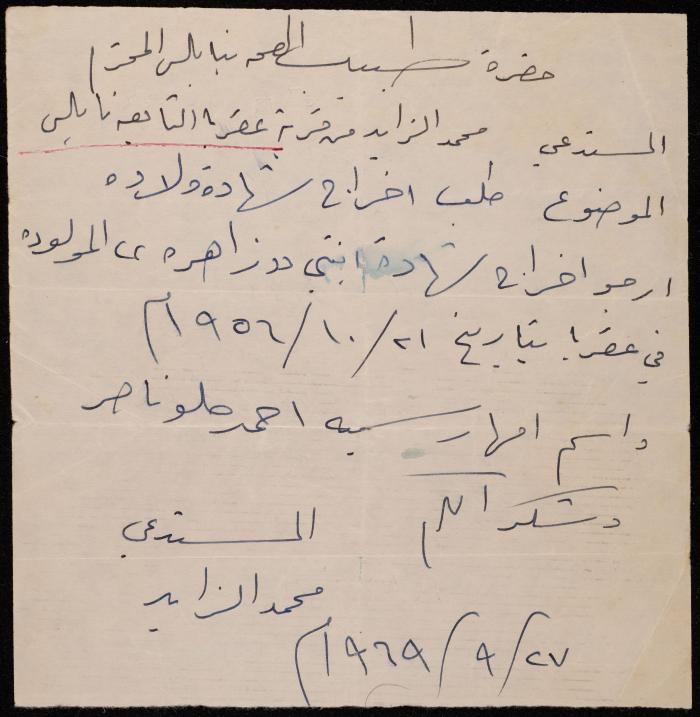 حضرة طبيب الصحه بنابلس المحترم
المستدعي محمد الزايد من قرية عقربا التابعه نابلس
الموضوع طلب اخراج شهادة ولاده
ارجو اخراج شهادة ابنتي دوزاهره المولوده
في عقربا بتاريخ ٢١/١٠/١٩٥٦م
واسم امها رسميه احمد حلو ناصر
وشكرا لكم
المستدعي
محمد الزايد
٢٧/٩/١٩٦٩م